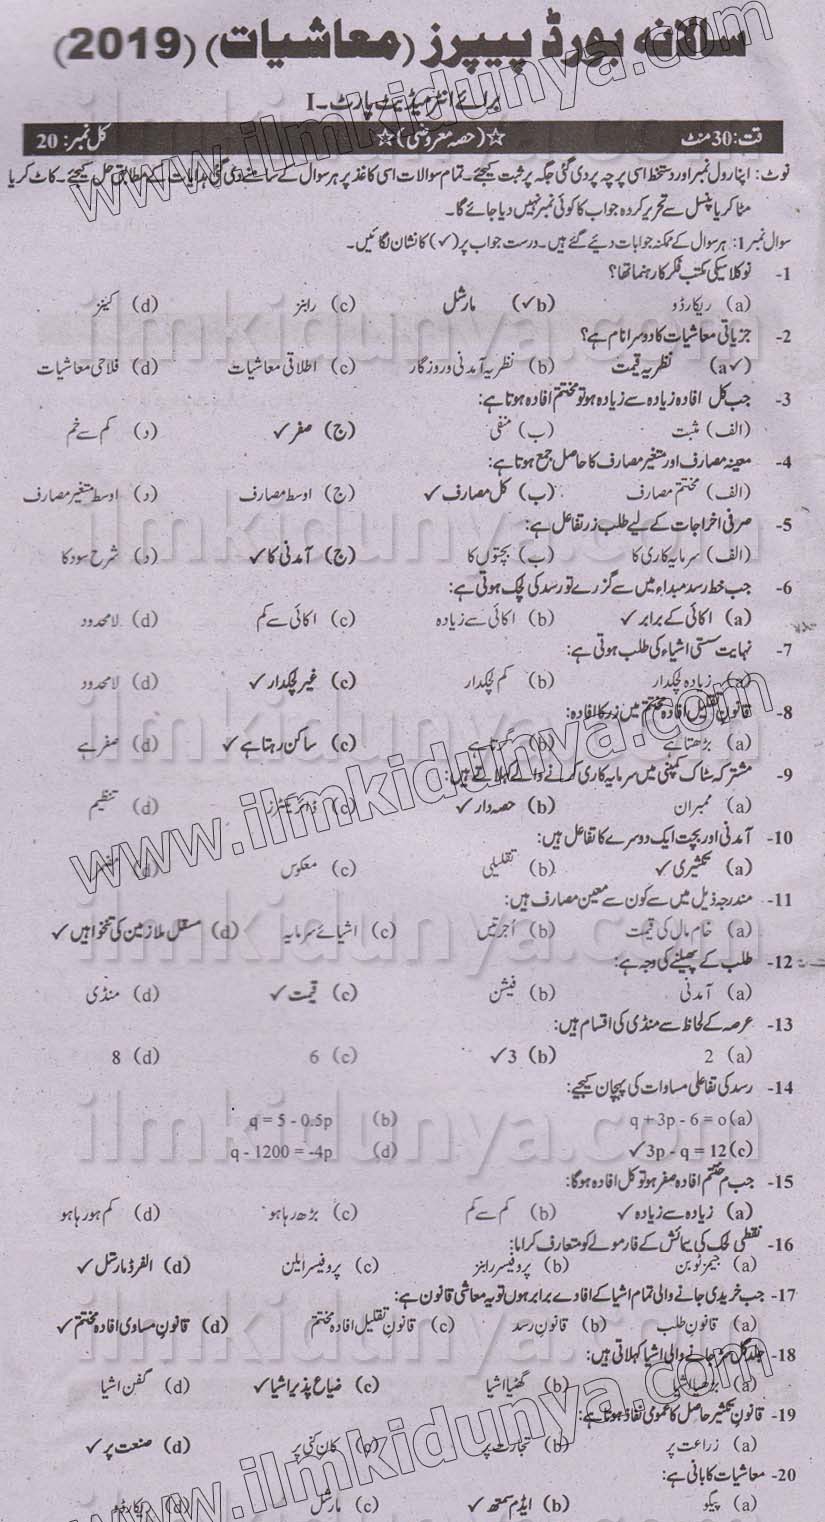 سالانہ بورڈ پیپرز (معاشیات) (2019)
برائے انٹرمیڈیٹ پارٹ - I
وقت: 30 منٹ ☆(حصہ معروضی)☆ کل نمبر: 20
نوٹ: اپنا رول نمبر اور دستخط اسی پرچہ پر دی گئی جگہ پر ثبت کیجئے۔ تمام سوالات اسی کاغذ پر ہر سوال کے سامنے دی گئی ہدایات کے مطابق حل کیجئے۔ کاٹ کر یا
مٹا کر یا پنسل سے تحریر کردہ جواب کا کوئی نمبر نہیں دیا جائے گا۔
سوال نمبر 1: ہر سوال کے ممکنہ جوابات دیئے گئے ہیں۔ درست جواب پر (✓) کا نشان لگائیں۔
1- نوکلاسیکی مکتب فکر کا رہنما تھا؟
(a) ریکارڈو (b✓) مارشل (c) رابنز (d) کینز
2- جزیاتی معاشیات کا دوسرا نام ہے؟
(a✓) نظریہ قیمت (b) نظریہ آمدنی و روزگار (c) اطلاقی معاشیات (d) فلاحی معاشیات
3- جب کل افادہ زیادہ سے زیادہ ہو تو مختتم افادہ ہوتا ہے:
(الف) مثبت (ب) منفی (ج) صفر ✓ (د) کم سے کم
4- معینہ مصارف اور متغیر مصارف کا حاصل جمع ہوتا ہے:
(الف) مختتم مصارف (ب) کل مصارف ✓ (ج) اوسط مصارف (د) اوسط متغیر مصارف
5- صرفی اخراجات کے لیے طلب زر تفاعل ہے:
(الف) سرمایہ کاری کا (ب) بچتوں کا (ج) آمدنی کا ✓ (د) شرح سود کا
6- جب خط رسد مبداء میں سے گزرے تو رسد کی لچک ہوتی ہے:
(a) اکائی کے برابر ✓ (b) اکائی سے زیادہ (c) اکائی سے کم (d) لامحدود
7- نہایت سستی اشیاء کی طلب ہوتی ہے:
(a) زیادہ لچکدار (b) کم لچکدار (c) غیر لچکدار ✓ (d) لامحدود
8- قانون تقلیل افادہ مختتم میں زر کا افادہ:
(a) بڑھتا ہے (b) گرتا ہے (c) ساکن رہتا ہے ✓ (d) صفر ہے
9- مشترکہ سٹاک کمپنی میں سرمایہ کاری کرنے والے کہلاتے ہیں:
(a) ممبران (b) حصہ دار ✓ (c) ڈائریکٹرز (d) تنظیم
10- آمدنی اور بچت ایک دوسرے کا تفاعل ہیں:
(a) تکثیری ✓ (b) تقلیلی (c) معکوس (d)
11- مندرجہ ذیل میں سے کون سے معین مصارف ہیں:
(a) خام مال کی قیمت (b) اُجرتیں (c) اشیائے سرمایہ (d) مستقل ملازمین کی تنخواہیں ✓
12- طلب کے پھیلنے کی وجہ ہے:
(a) آمدنی (b) فیشن (c) قیمت ✓ (d) منڈی
13- عرصہ کے لحاظ سے منڈی کی اقسام ہیں:
(a) 2 (b) 3✓ (c) 6 (d) 8
14- رسد کی تفاعلی مساوات کی پہچان کیجیے:
(a) q + 3p - 6 = o (b) q = 5 - 0.5p
(c) 3p - q = 12✓ (d) q - 1200 = -4p
15- جب مختتم افادہ صفر ہو تو کل افادہ ہوگا:
(a) زیادہ سے زیادہ ✓ (b) کم سے کم (c) بڑھ رہا ہو (d) کم ہو رہا ہو
16- نقطی لچک کی پیمائش کے فارمولے کو متعارف کرایا:
(a) جیمز ٹوبن (b) پروفیسر رابنز (c) پروفیسر ایلن (d) الفرڈ مارشل ✓
17- جب خریدی جانے والی تمام اشیا کے افادے برابر ہوں تو یہ معاشی قانون ہے:
(a) قانونِ طلب (b) قانونِ رسد (c) قانونِ تقلیل افادہ مختتم (d) قانونِ مساوی افادہ مختتم ✓
18- جلد گل سڑ جانے والی اشیا کہلاتی ہیں:
(a) بڑھیا اشیا (b) گھٹیا اشیا (c) ضیاع پذیر اشیا ✓ (d) گفن اشیا
19- قانونِ تکثیر حاصل کا عمومی نفاذ ہوتا ہے:
(a) زراعت پر (b) تجارت پر (c) کان کنی پر (d) صنعت پر ✓
20- معاشیات کا بانی ہے:
(a) پیگو (b) ایڈم سمتھ ✓ (c) مارشل (d) ریکارڈو
www.ilmkidunya.com
ilmkidunya.com